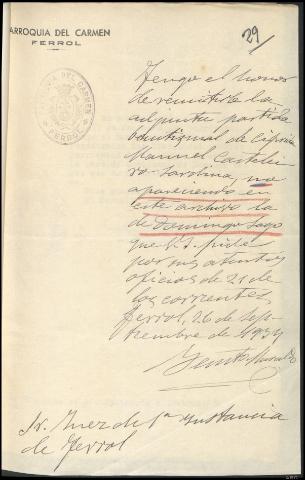 PARROQUIA DEL CARMEN
FERROL
29
PARROQUIA DEL CARMEN
FERROL
Tengo el honor
de remitirle la
adjunta partida
bautismal de
Manuel Castelei-
ro Sardina, no
apareciendo en
este archivo la
de Domingo Lago
que V.I. pide
por sus atentos
oficios de 21 de
los corrientes,
Ferrol, 26 de Sep-
tiembre de 1939
Sr. Juez de 1ª Instancia
de Ferrol